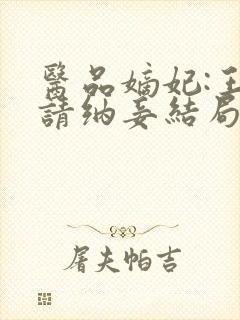 醫品嫡妃:王
請納妾結局
屠夫帕吉